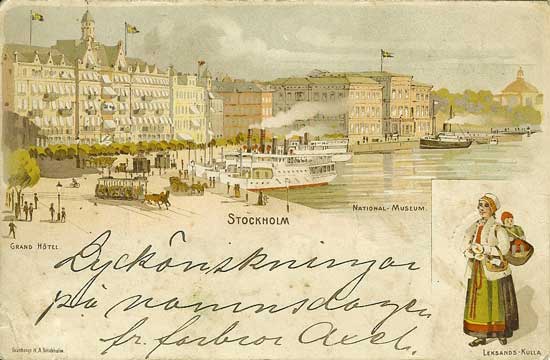 GRAND HÔTEL.
STOCKHOLM
NATIONAL-MUSEUM.
Lyckönskningar
på namnsdagen
fr. farbror Axel.
LEKSANDS-KULLA.